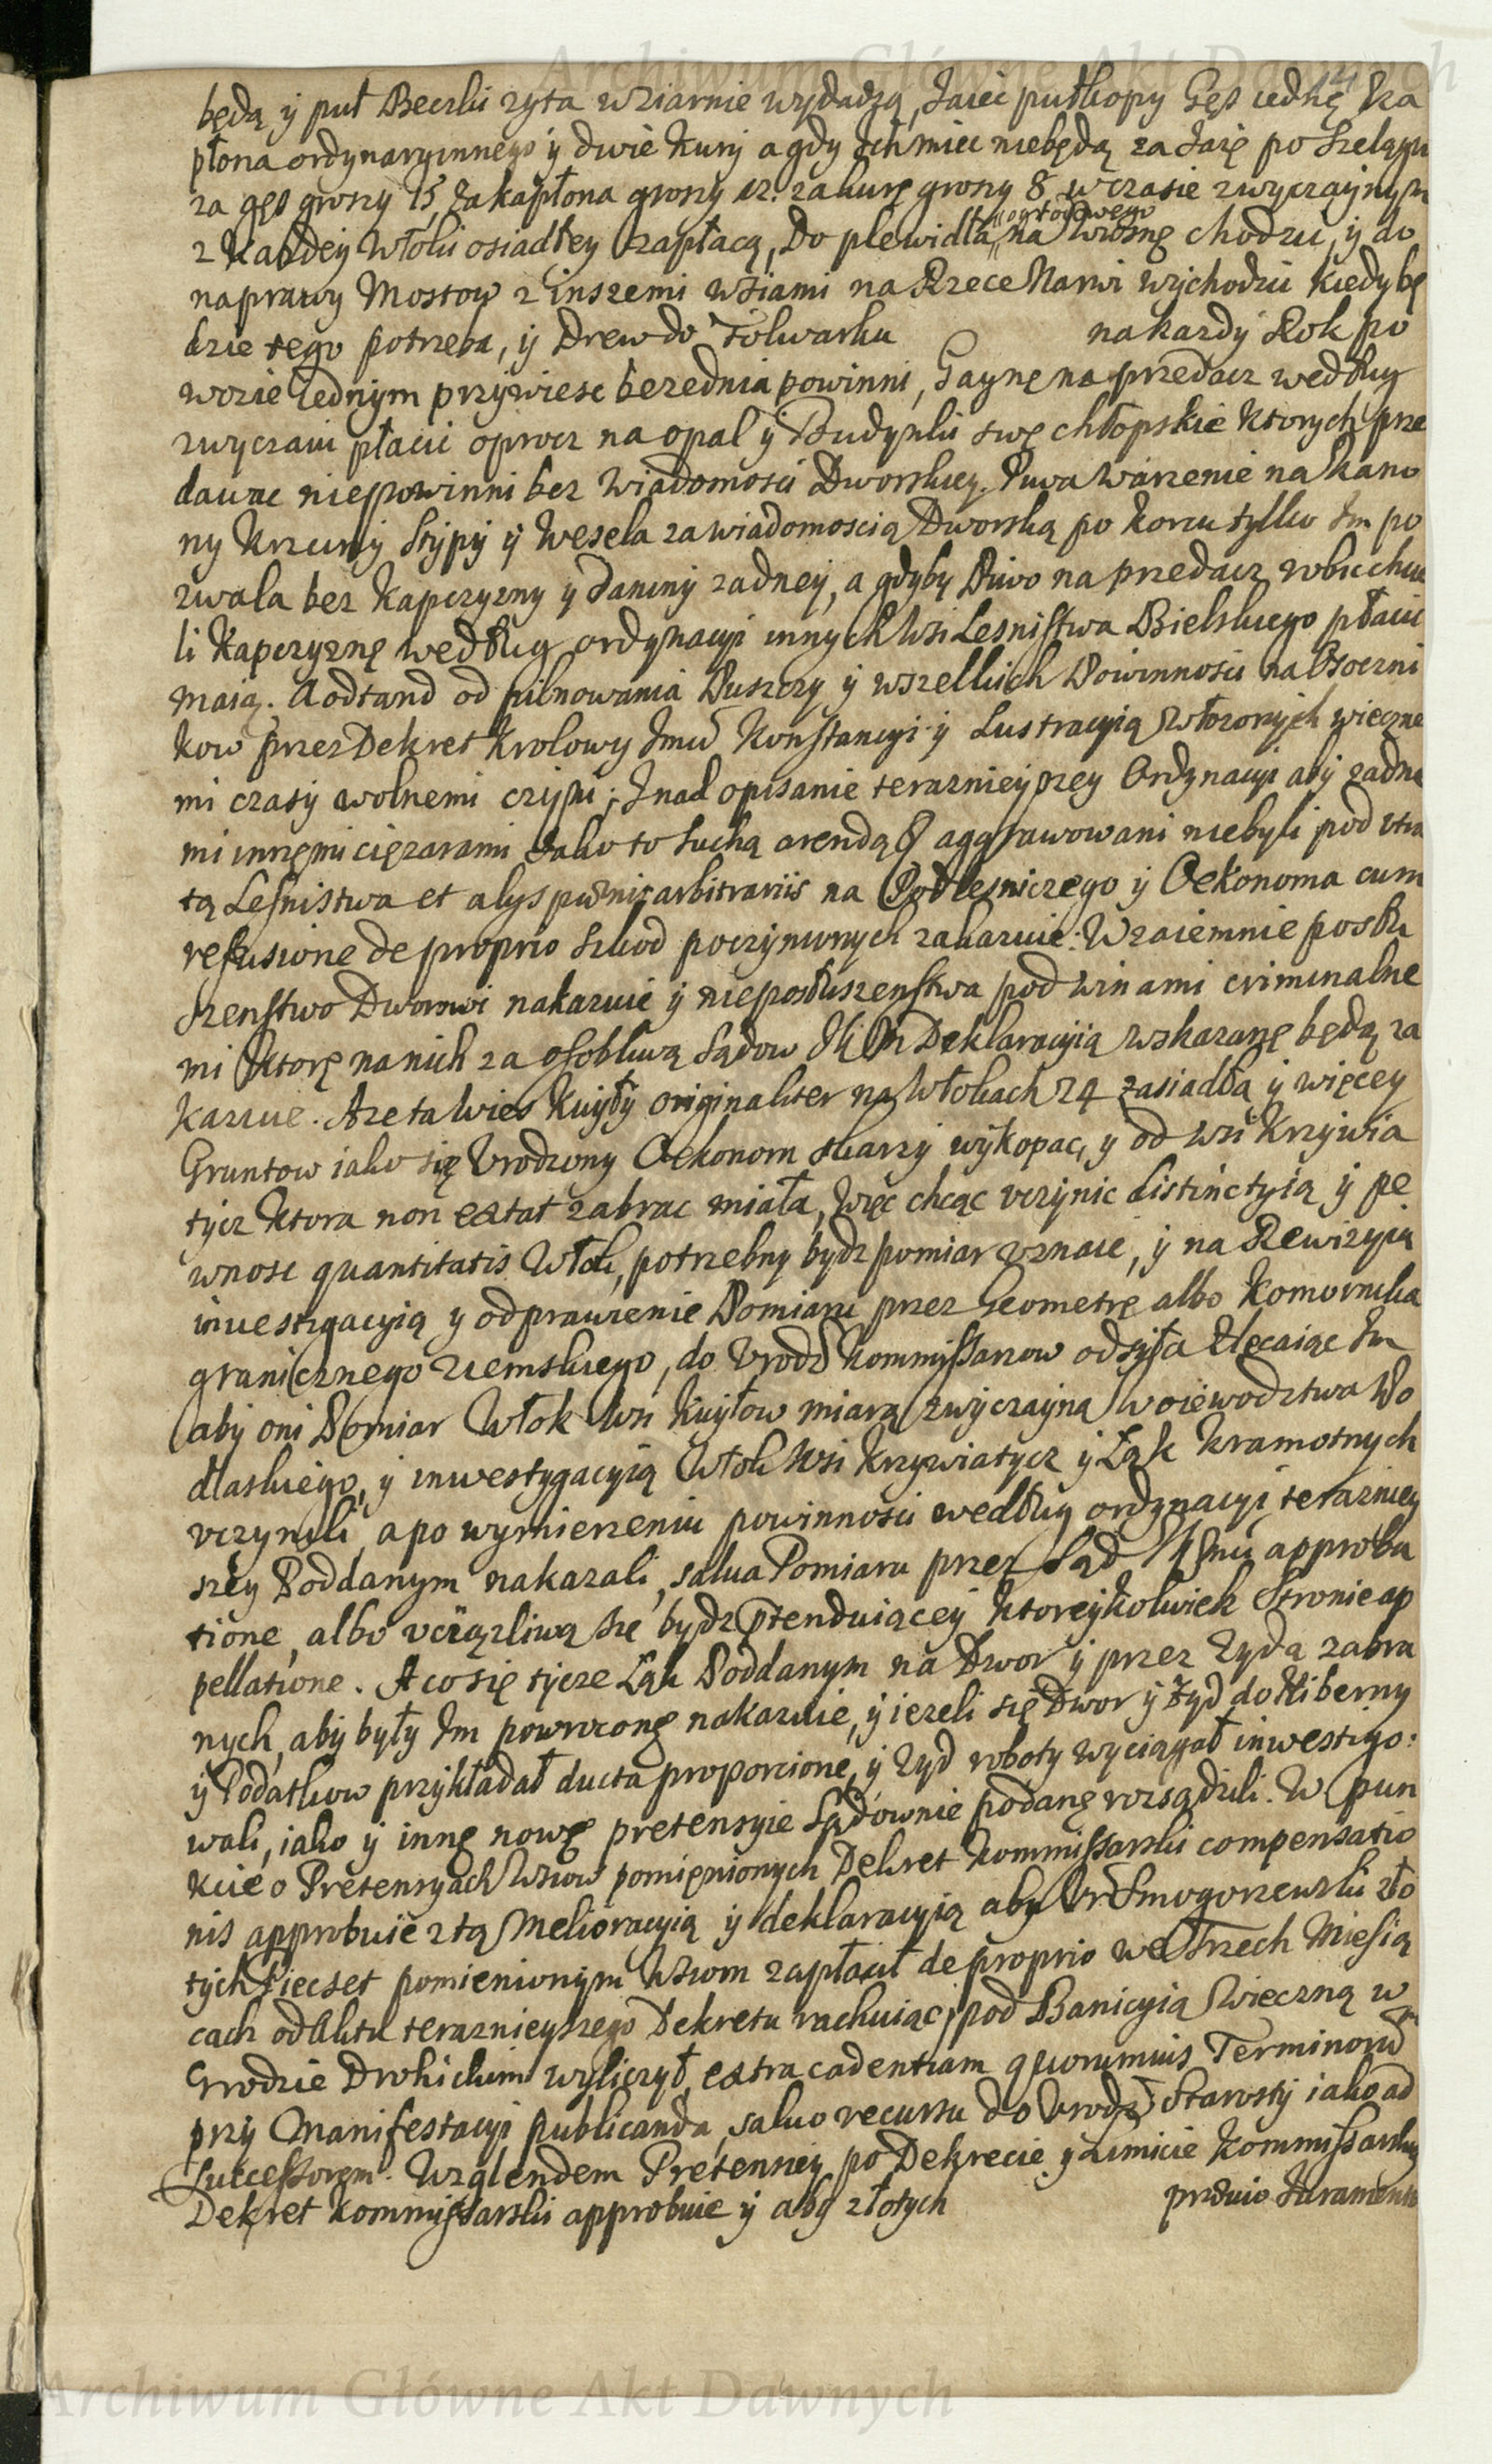 Archiwum Główne Akt Dawnych
będą ӱ puł Beczki zyta wziarnie wydadzą, Jaiec pułkopy Gęs iednę Ka
płona ordynaryinnego ӱ dwie Kury a gdy Ich miec niebędą za Jaię po szelągu
za gęs groszy 15, za kapłona groszy 12. za kurę groszy 8 wczasie zwyczaynym
z Kazdey Włoki osiadłey zapłacą, Do plewidła ogrodowego na wiosnę chodzic, ӱ do
naprawy Mostow z inszemi wsiami na Rzece Narwi wychodzic kiedy bę
dzie tego potrzeba, ӱ Drew do Folwarku na kazdy Rok po
wozie Iednym przywiesc bezednia powinni, Gaynę na przedacz według
zwyczaiu płacic oprocz na opał ӱ Budynki swę chłopskie Ktorych prze
dawac niepowinni bez Wiadomosci Dworskiey. Piwa Warzenie na Kano
ny Krzciny Stypy ӱ Wesela za wiadomoscią Dworską po korcu tylko Im po
zwala bez Kapczyzny ӱ daniny zadney, a gdyby Piwo na przedacz robic chcie
li Kapczyznę według ordynacyi innych Wsi Lesnistwa Bielskiego płacic
maią. A odtand od pilnowania Puszczy ӱ wszelkich Powinnosci na Osoczni
kow przez Dekret Krolowy Imci Konstancyi ӱ Lustracyią włozonych wieczne
mi czasy wolnemi czyni; I nad opisanie teraznieyszey Ordynacyi aby zadne
mi innęmi cięzarami Jako to suchą arendą aggrawowani niebyli pod utra
tą Lesnistwa et alys pœnis arbitrariis na Podlesniczego ӱ Oekonoma cum
refusione de proprio szkod poczynionych zakazuie. Wzaiemnie posłu
szenstwo Dworowi nakazuie ӱ nieposłuszenstwa pod winami criminalne
mi Ktorę na nich za osobliwą Sądow Deklaracyią wskazanę będą za
kazuie. A ze ta Wies Kuyły originaliter na Włokach 24 zasiadła ӱ więcey
Gruntow iako się Urodzony Oekonom skarzy wykopac, y od wsi Krzywia
tycz Ktora non extat zabrac miała, Więc chcąc uczynic distinctyią ӱ pe
wnosc quantitatis Włok, potrzebny bydz pomiar uznaie, ӱ na Rewizyią
inuestigacyią y odprawienie Pomiaru przez Geometrę albo Komornika
granicznego ziemskiego, do Urodz Kommissarzow odsyła zlecaiąc Im
aby oni Pomiar Włok Wsi Kuyłow miarą zwyczayną Woiewodztwa Po
dlaskiego, ӱ inwestygacyią Włok Wsi Krzywiatycz ӱ Łąk Kramotnych
uczynili, a po wymierzeniu powinnosci według ordynacyi terazniey
szey Poddanym nakazali, salua Pomiaru przez Sąd approba
tione, albo uciązliwą się bydz prætenduiącey Ktoreykolwiek Stronie ap
pellatione. A co się tycze Łąk Poddanym na Dwor ӱ przez Zyda zabra
nych, aby były Im powrocone nakazuie, ӱ iezeli się Dwor ӱ Żyd do Hiberny
ӱ Podatkow przykładał ducta proporcione, ӱ Zyd roboty wyciągał inwestigo:
wali, iako ӱ innę nowę pretensyie Sądownie podanę rozsądzili. W pun
kcie o Pretensyach Wsiow pomięnionych Dekret Kommissarski compensatio
nis approbuie z tą Melioracyią ӱ deklaracyią aby Ur Smogorzewski zło
tych Piecset pomienionym Wsiom zapłacił de proprio we Trzech Miesią
cach od Aktu teraznieyszego Dekretu rachuiąc, pod Banicyią Wieczną w
Grodzie Drohickim wyliczył, extra cadentiam quorumuis Terminorum
przy Manifestacyi publicanda, saluo recursu do Urodz Starosty iako ad
Successorem. Względem Pretensiey po Dekrecie y Limicie Kommissarskiey
Dekret Kommissarski approbuie ӱ aby złotych præuio Juramento
Archiwum Główne Akt Dawnych